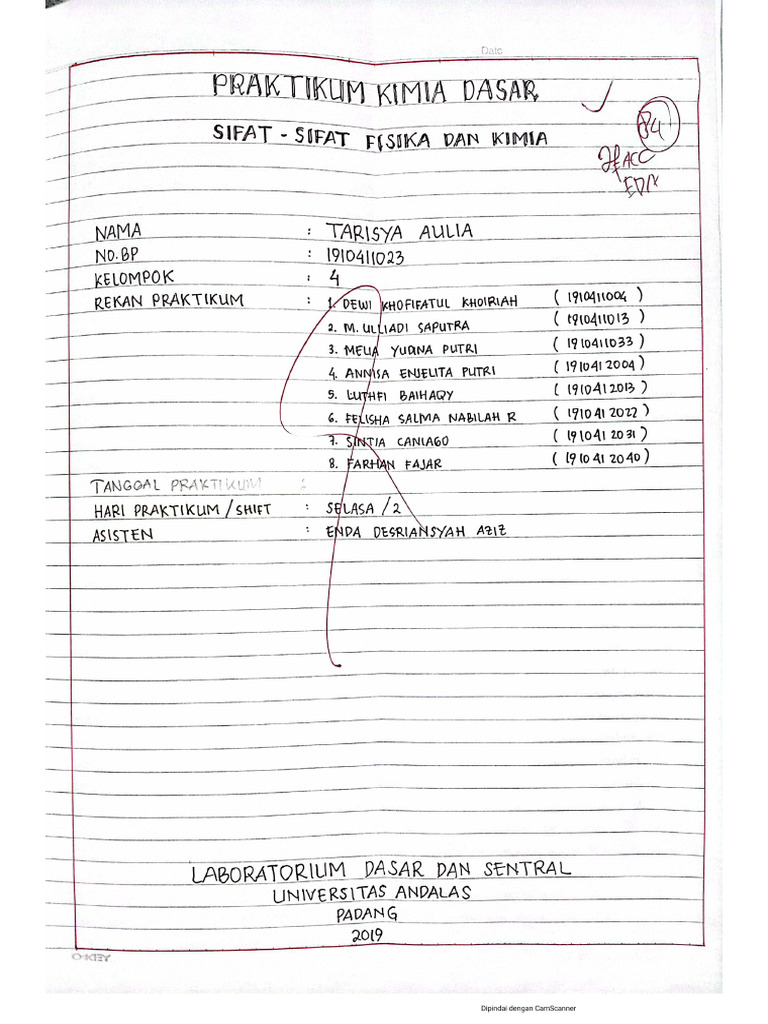 Date
PRAKTIKUM KIMIA DASAR
SIFAT - SIFAT FISIKA DAN KIMIA
84
ACC
NAMA : TARISYA AULIA
NO.BP : 1910411023
KELOMPOK : 4
REKAN PRAKTIKUM : 1. DEWI KHOFIFATUL KHOIRIAH (1910411004)
2. M. ULLIADI SAPUTRA (1910411013)
3. MELIA YUDINA PUTRI (1910411033)
4. ANNISA ENJELITA PUTRI (1910412004)
5. LUTHFI BAIHAQY (1910412013)
6. FELISHA SALMA NABILAH R (1910412022)
7. SINTIA CANIAGO (1910412031)
8. FARHAN FAJAR (1910412040)
TANGGAL PRAKTIKUM :
HARI PRAKTIKUM / SHIFT : SELASA / 2
ASISTEN : ENDA DESRIANSYAH AZIZ
LABORATORIUM DASAR DAN SENTRAL
UNIVERSITAS ANDALAS
PADANG
2019
Dipindai dengan CamScanner